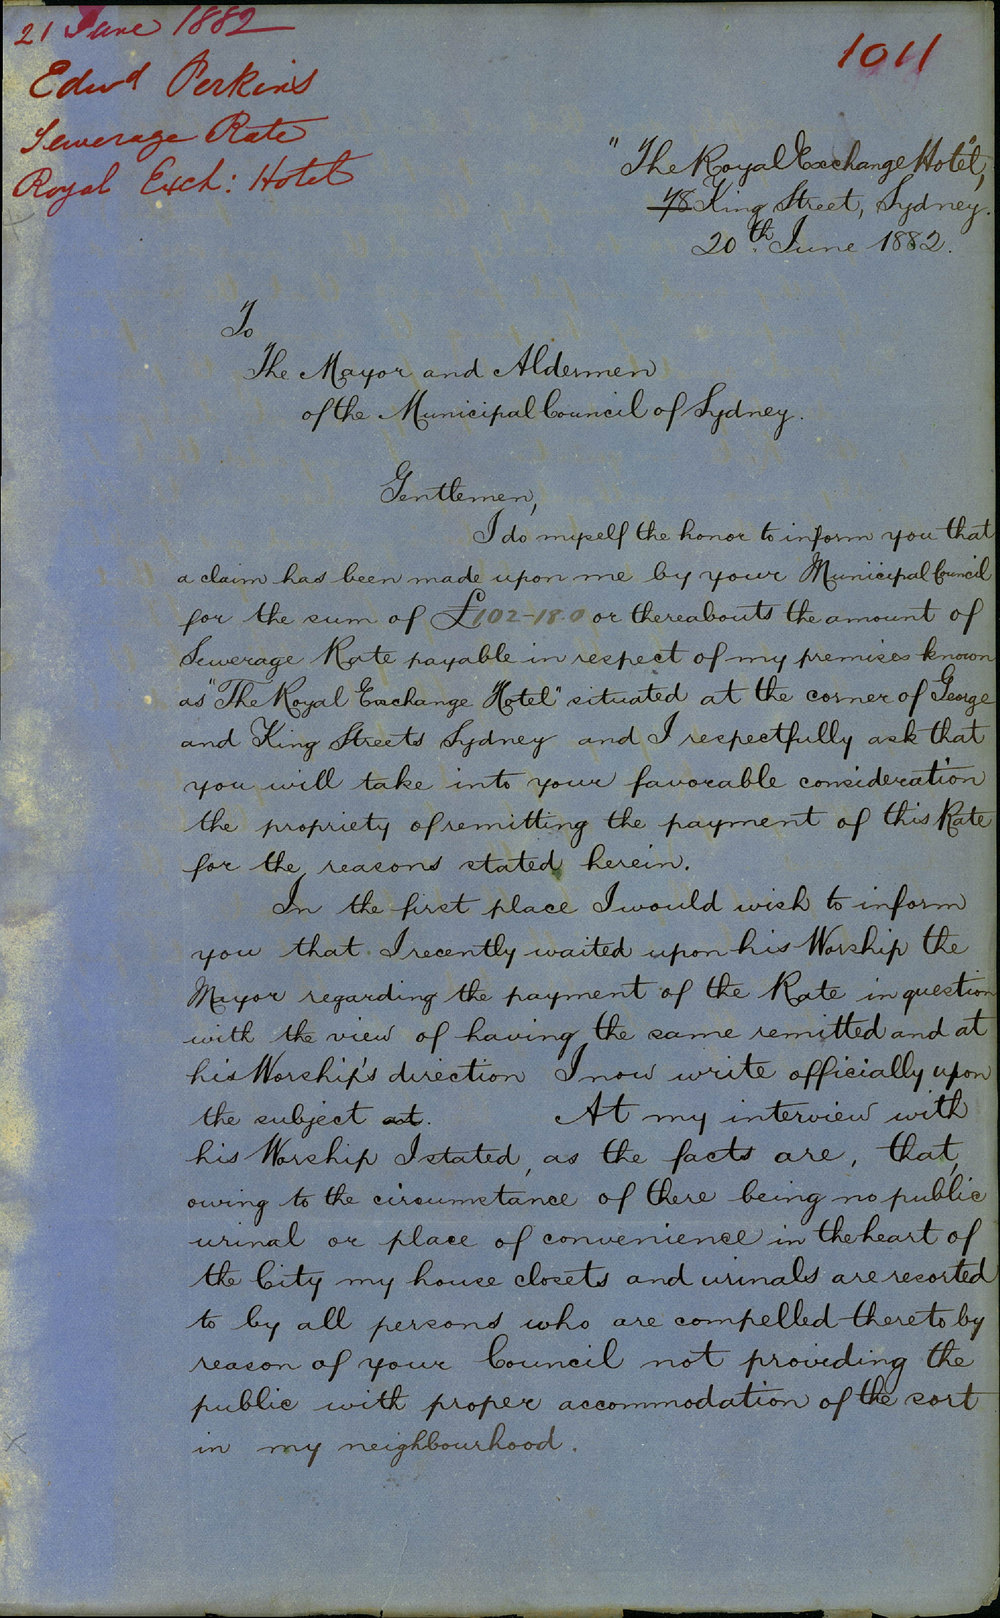 21 June 1882
Edwd Perkins
Sewerage Rate
Royal Exch: Hotel
1011
"The Royal Exchange Hotel",
78 King Street, Sydney.
20th June 1882.
To
The Mayor and Aldermen
of the Municipal Council of Sydney.
Gentlemen,
I do myself the honor to inform you that
a claim has been made upon me by your Municipal Council
for the sum of £102-18-0 or thereabouts the amount of
Sewerage Rate payable in respect of my premises known
as "The Royal Exchange Hotel" situated at the corner of George
and King Streets Sydney and I respectfully ask that
you will take into your favorable consideration
the propriety of remitting the payment of this Rate
for the reasons stated herein.
In the first place I would wish to inform
you that I recently waited upon his Worship the
Mayor regarding the payment of the Rate in question
with the view of having the same remitted and at
his Worship's direction I now write officially upon
the subject at. At my interview with
his Worship I stated, as the facts are, that,
owing to the circumstance of there being no public
urinal or place of convenience in the heart of
the City my house closets and urinals are resorted
to by all persons who are compelled thereto by
reason of your Council not providing the
public with proper accommodation of the sort
in my neighbourhood.